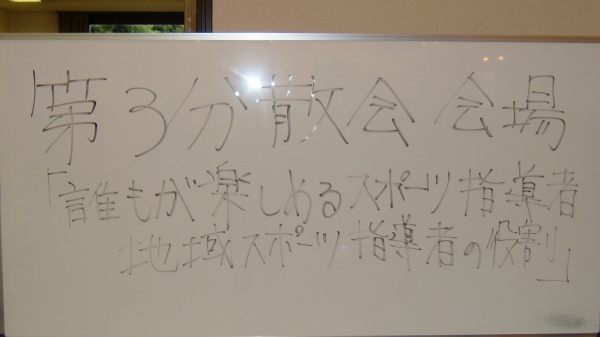 第3分散会 会場
「誰もが楽しめるスポーツ指導者
地域スポーツ指導者の役割」